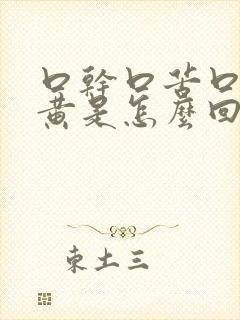 口幹口苦口
黄是怎麼回
東土三